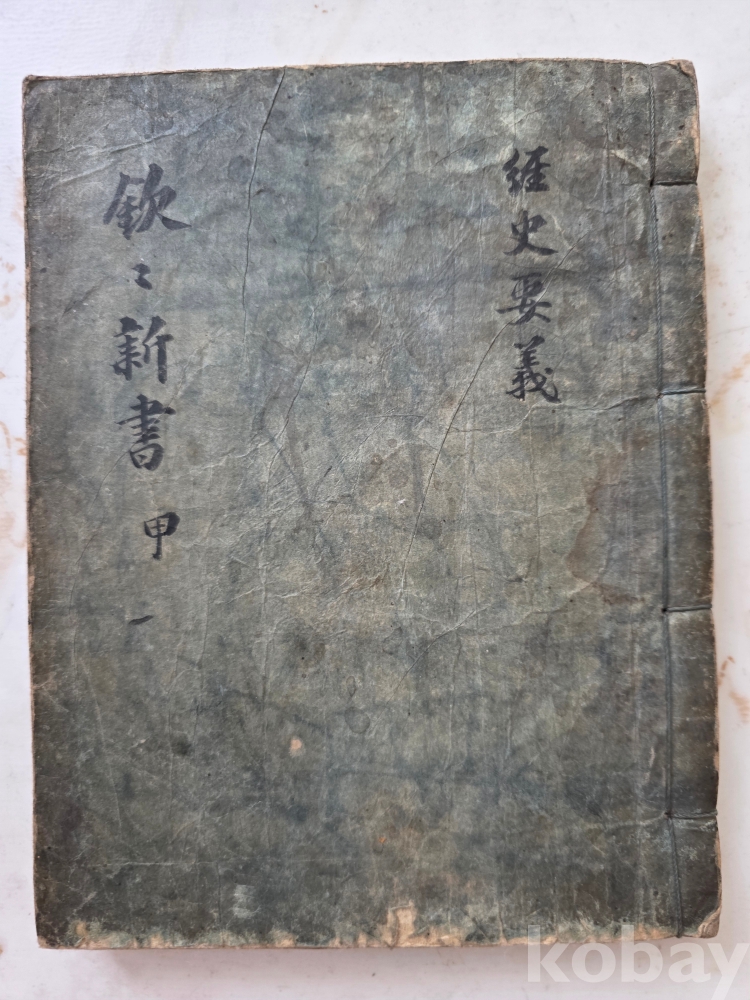 經史要義
欽〻新書 甲 一
kobay